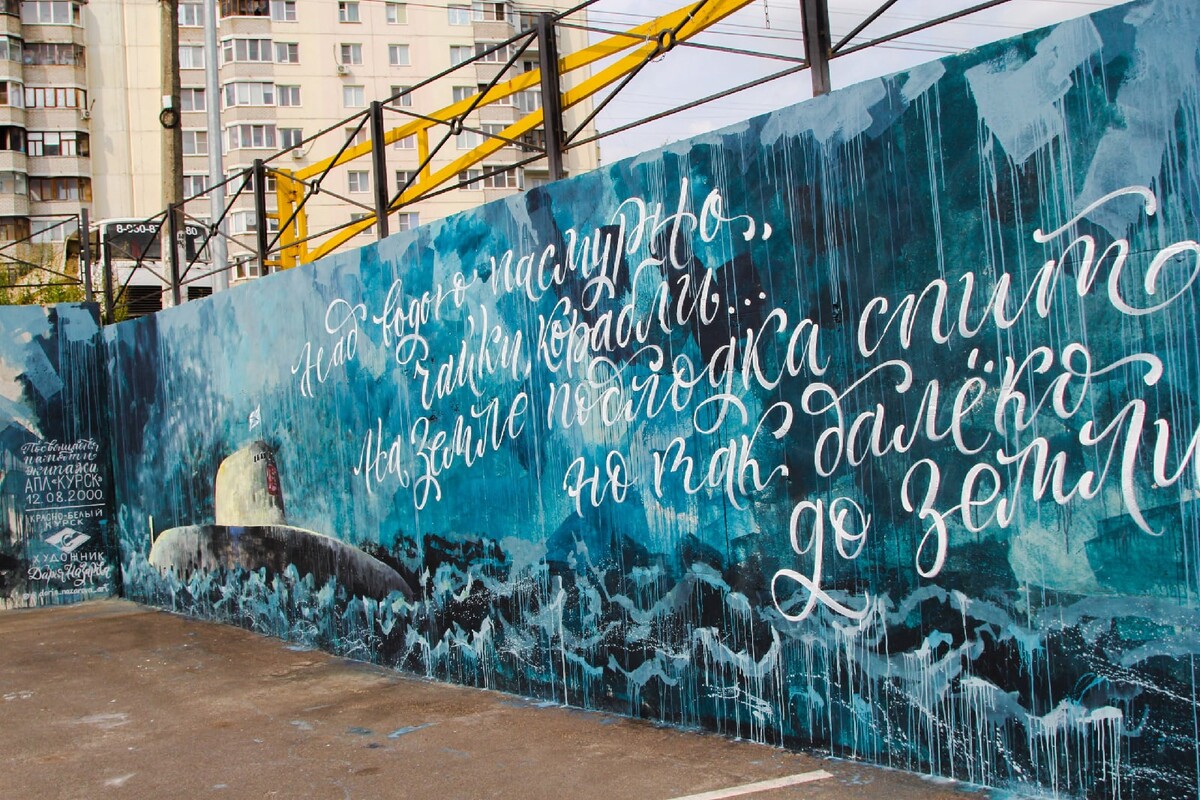 8-960-87 80
Над водою пасмурно,
чайки, корабли...
На земле подлодка спит
но так далёко
до земли
Посвящается
памяти
экипажа
АПЛ «КУРСК»
12.08.2000.
КРАСНО-БЕЛЫЙ
КУРСК
ХУДОЖНИК
Дарья Назарова